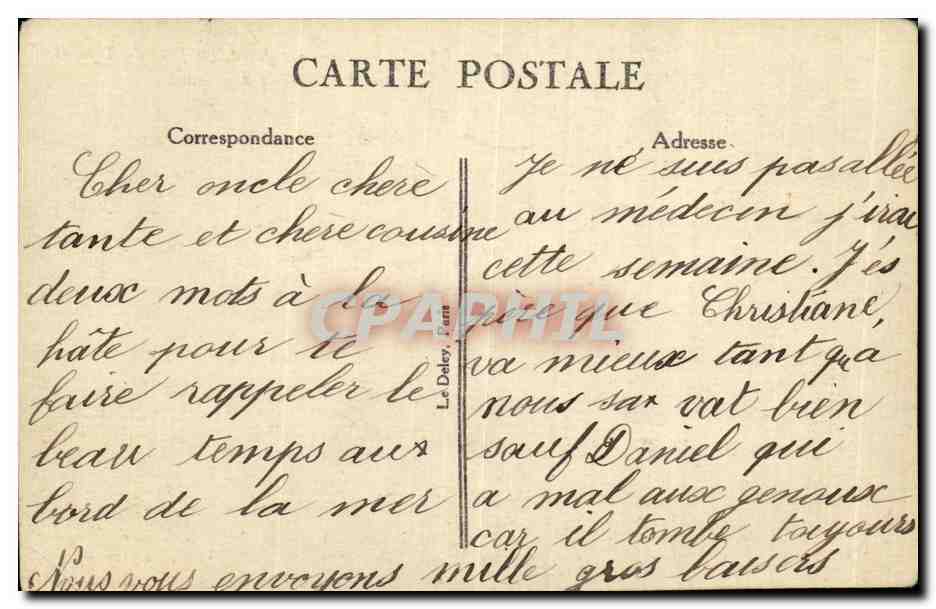 CARTE POSTALE
Correspondance
Cher oncle chère
tante et chère cousine
deux mots à la
hâte pour te
faire rappeler le
beau temps aux
bord de la mer
Le Deley, Paris
Adresse
Je né suis pas allée
au médecin j'irai
cette semaine. J'es
père que Christiane,
va mieux tant qu'a
nous sa vat bien
sauf Daniel qui
a mal aux genoux
car il tombe toujours
Nous vous envoyons mille gros baisers
CPAPHIL